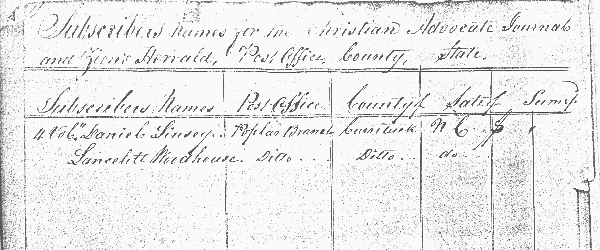 Subscribers Names for the Christian Advocate Journal
and Zion's Herrald, Post Office, County, State.
Subscribers Names Post Office County State Sums
Daniel Lindsey Poplar Branch Currituck N C $
Lancelitt Woodhouse. Ditto Ditto. do.